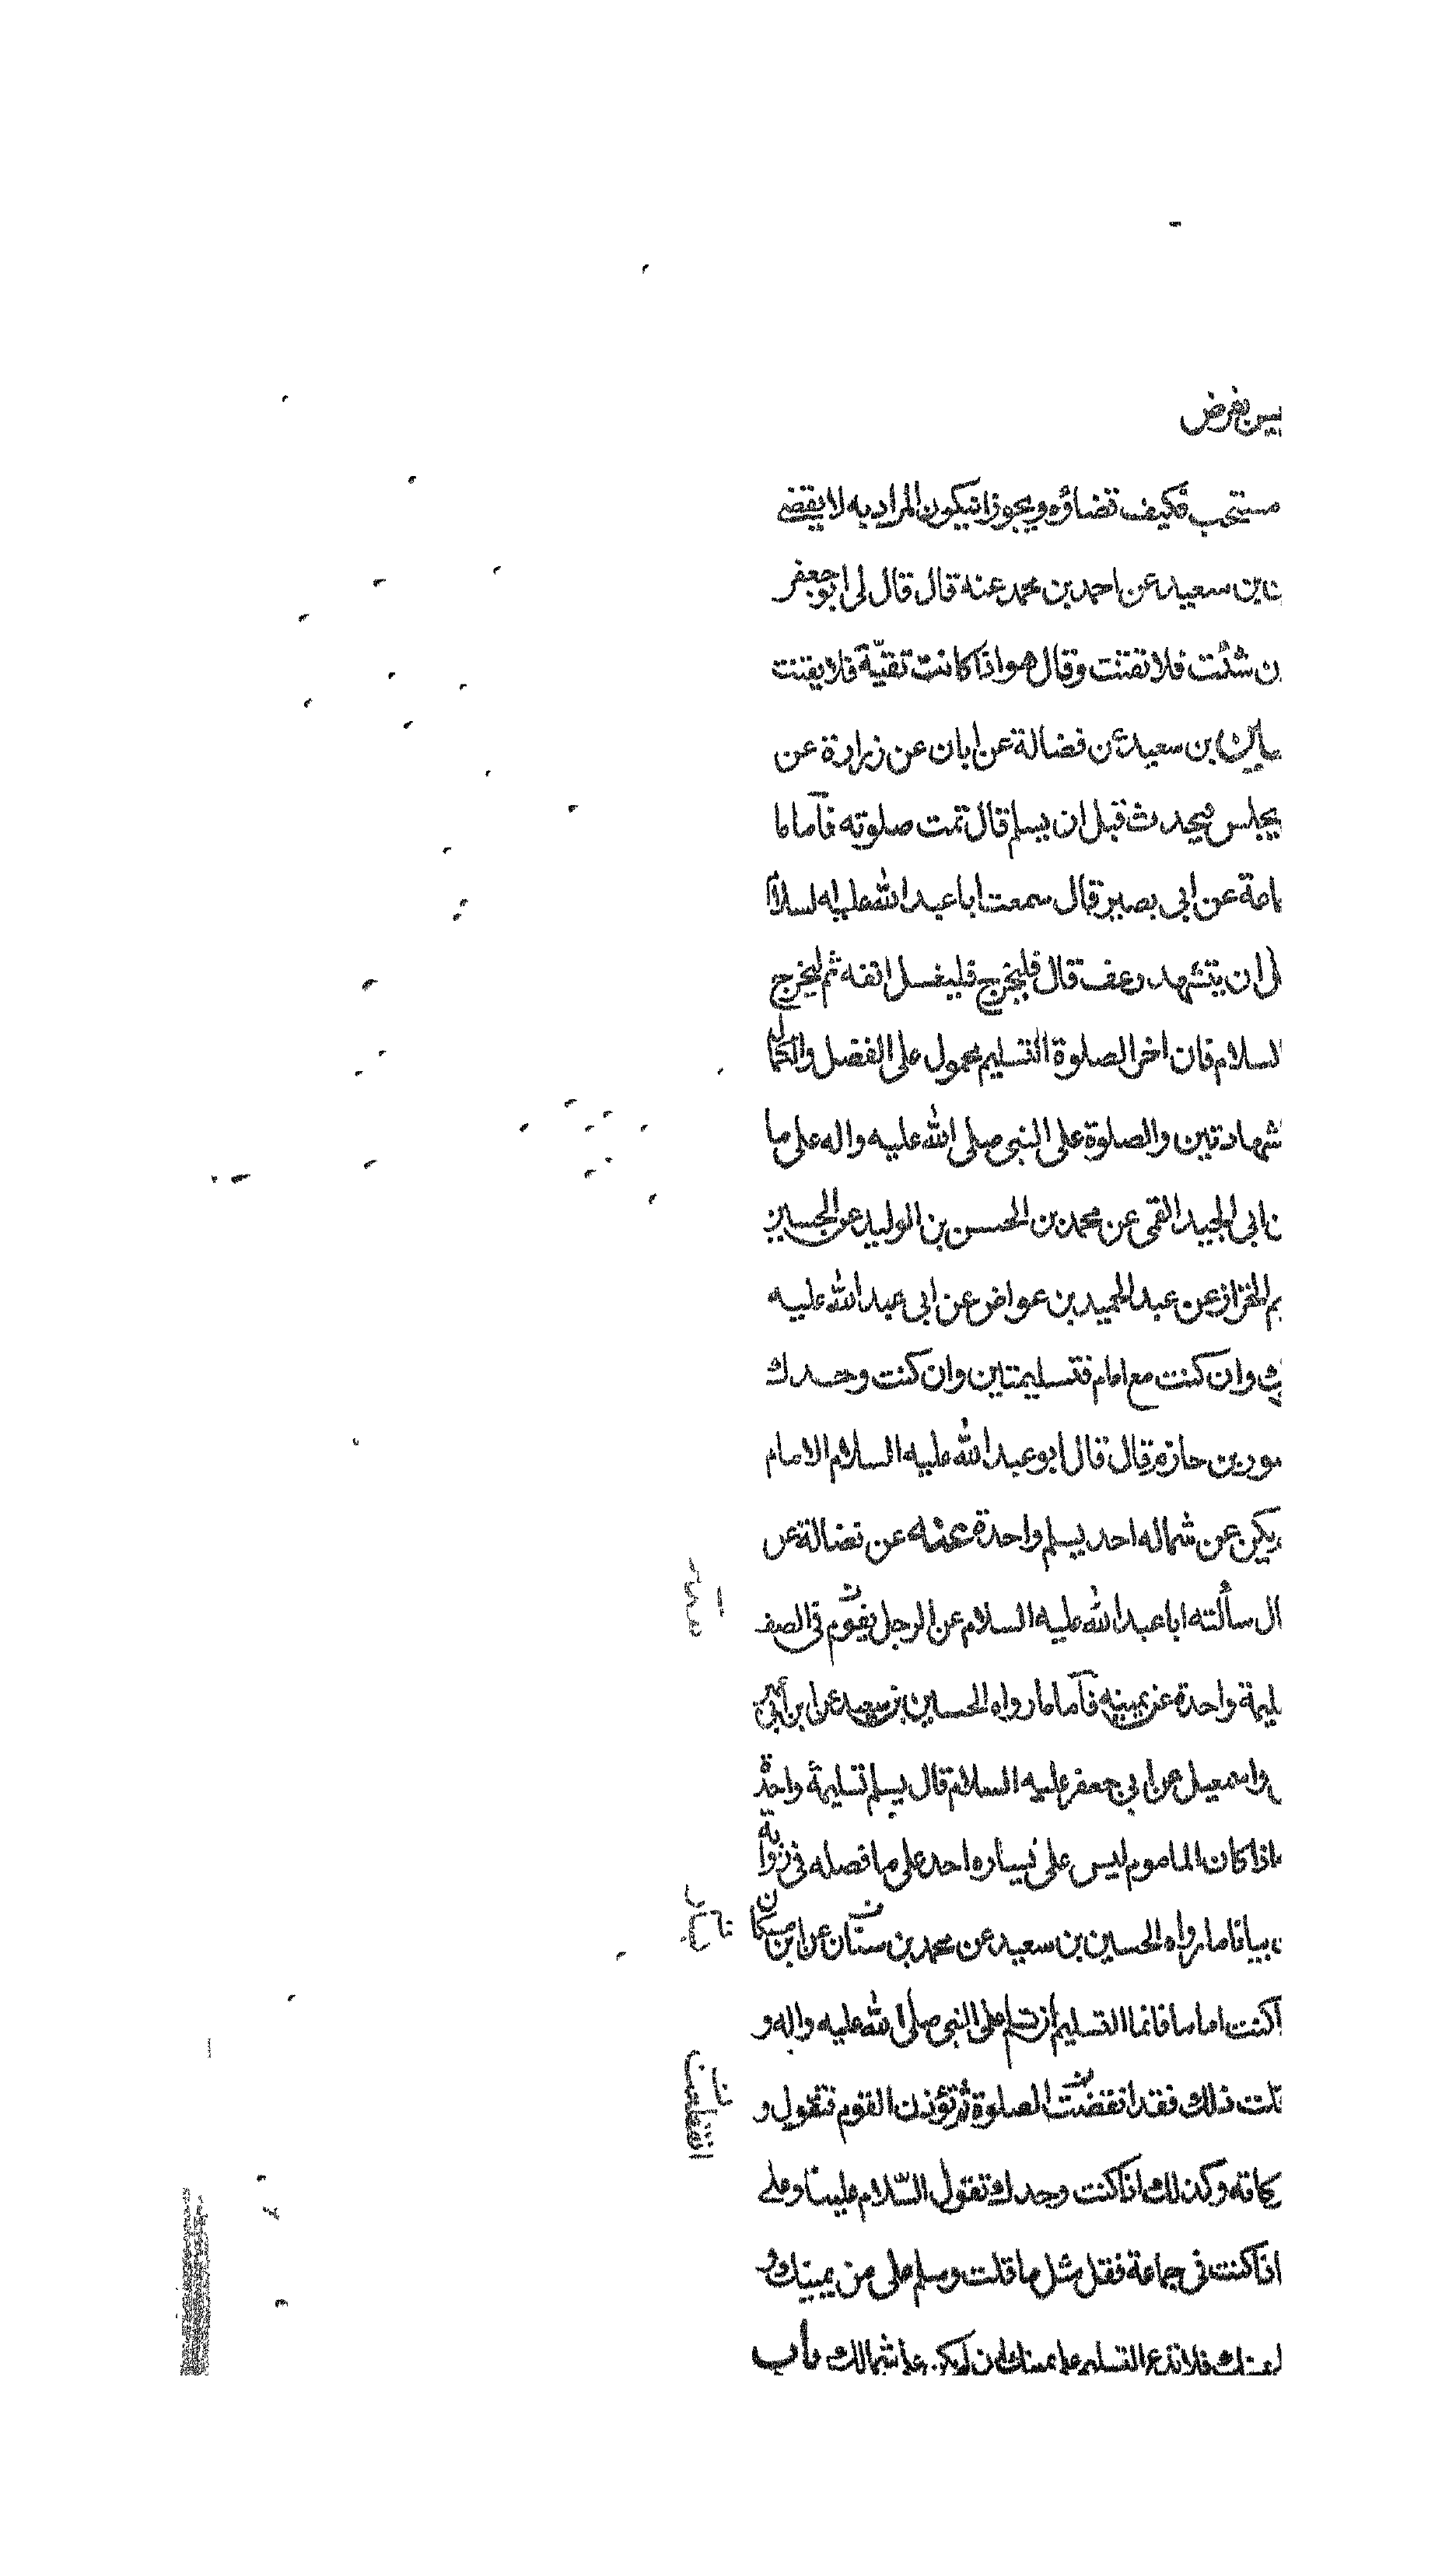 بين بفرض
مستحب فكيف قضاؤه ويجوز ان يكون المراد به لا يقضي
بن سعيد عن احمد بن محمد عنه قال قال لى ابو جعفر
ن شئت فلا تقنت وقال هو اذا كانت تقيّة فلا يقنت
بن سعيد عن فضالة عن ابان عن زرارة عن
يجلس فيحدث قبل ان يسلم قال تمت صلوته فأما ما
عن ابى بصير قال سمعت ابا عبدالله عليه لسلام
ان يتشهد رعف قال فليخرج فليغسل انفه ثم ليخرج
السلام فان اخر الصلوة التسليم محمول على الفضل والكمال
شهادتين والصلوة على النبى صلى الله عليه واله على ما
ابى الجيد القمى عن محمد بن الحسن بن الوليد عن الحسين
م الخزاز عن عبد الحميد بن عواض عن ابى عبد الله عليه
وان كنت مع امام فتسليمتين وان كنت وحدك
ور بن حازم قال قال ابو عبد الله عليه السلام الامام
يكن عن شماله احد يسلم واحدة عنه عن فضالة عن
ال سألته ابا عبد الله عليه السلام عن الرجل يقوم فى الصف
ليمة واحدة عن يمينه فأما ما رواه الحسين بن سعيد عن ابن ابى
واسمعيل عن ابى جعفر عليه السلام قال يسلم تسليمة واحدة
اذا كان الماموم ليس على يساره احد على ما فصله فى رواية
بيانا ما رواه الحسين بن سعيد عن محمد بن سنان عن ابن مسكان
كنت اماما فانما التسليم ان تسلم على النبى صلى الله عليه واله و
قلت ذلك فقد انقضت الصلوة ثم تؤذن القوم فتقول و
وكذلك اذا كنت وحدك تقول السّلام علينا وعلى
اذا كنت فى جماعة فقل مثل ما قلت وسلم على من يمينك و
فلا تدع التسليم على يمينك ان لم يكن على شمالك باب